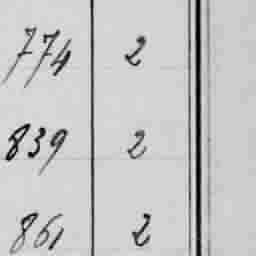 774 2
839 2
861 2